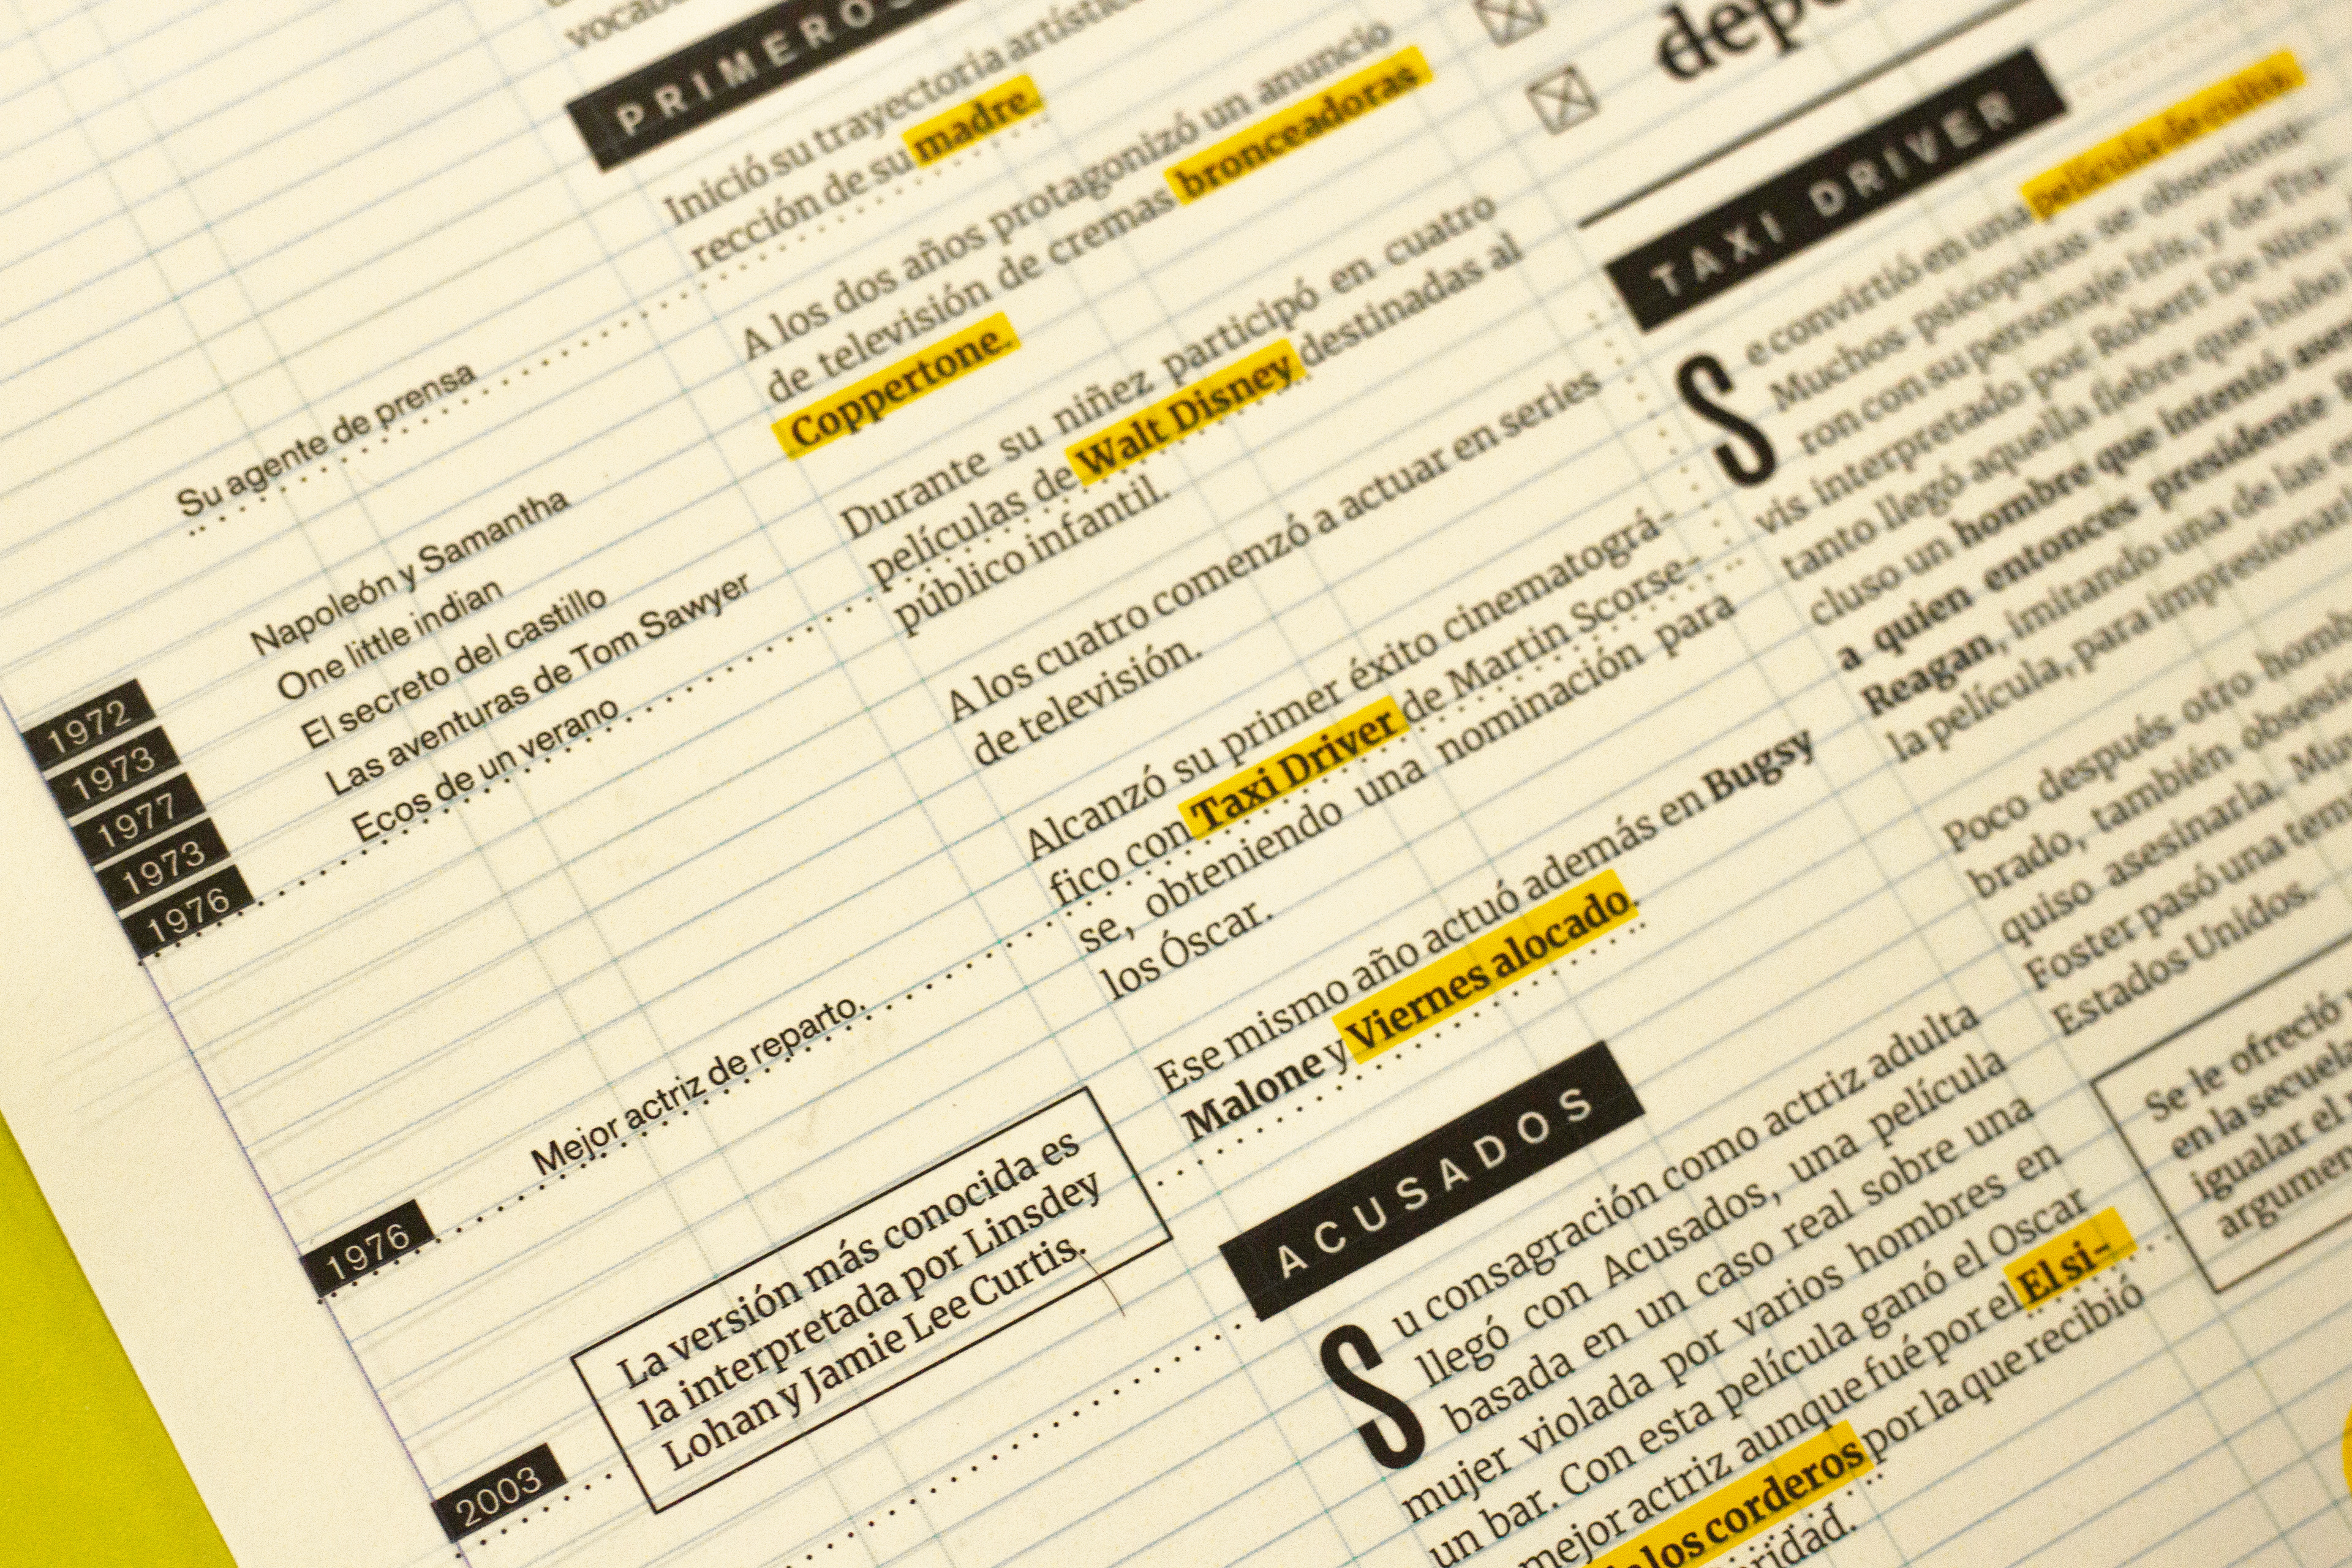 PRIMEROS
Inició su trayectoria artístic
rección de su madre.
A los dos años protagonizó un anuncio
de televisión de cremas bronceadoras
Coppertone.
Durante su niñez participó en cuatro
películas de Walt Disney destinadas al
público infantil.
A los cuatro comenzó a actuar en series
de televisión.
Alcanzó su primer éxito cinematográ-
fico con Taxi Driver de Martin Scorse-
se, obteniendo una nominación para
los Óscar.
Ese mismo año actuó además en Bugsy
Malone y Viernes alocado.
Su agente de prensa
1972 Napoleón y Samantha
1973 One little indian
1977 El secreto del castillo
1973 Las aventuras de Tom Sawyer
1976 Ecos de un verano
1976 Mejor actriz de reparto.
2003
La versión más conocida es
la interpretada por Linsdey
Lohan y Jamie Lee Curtis.
ACUSADOS
Su consagración como actriz adulta
llegó con Acusados, una película
basada en un caso real sobre una
mujer violada por varios hombres en
un bar. Con esta película ganó el Oscar
mejor actriz aunque fué por el El si-
los corderos por la que recibió
ridad.
depo
TAXI DRIVER
Se convirtió en una película de culto.
Muchos psicopatas se obsesiona-
ron con su personaje Iris, y de Tra-
vis interpretado por Robert De Niro.
tanto llegó aquella fiebre que hubo
cluso un hombre que intentó
a quien entonces presidente
Reagan, imitando una de las
la película, para impresionar
Poco después otro homb
brado, también obsesi
quiso asesinarla.
Foster pasó una tem
Estados Unidos.
Se le ofreció
en la secuela
igualar el
argumen